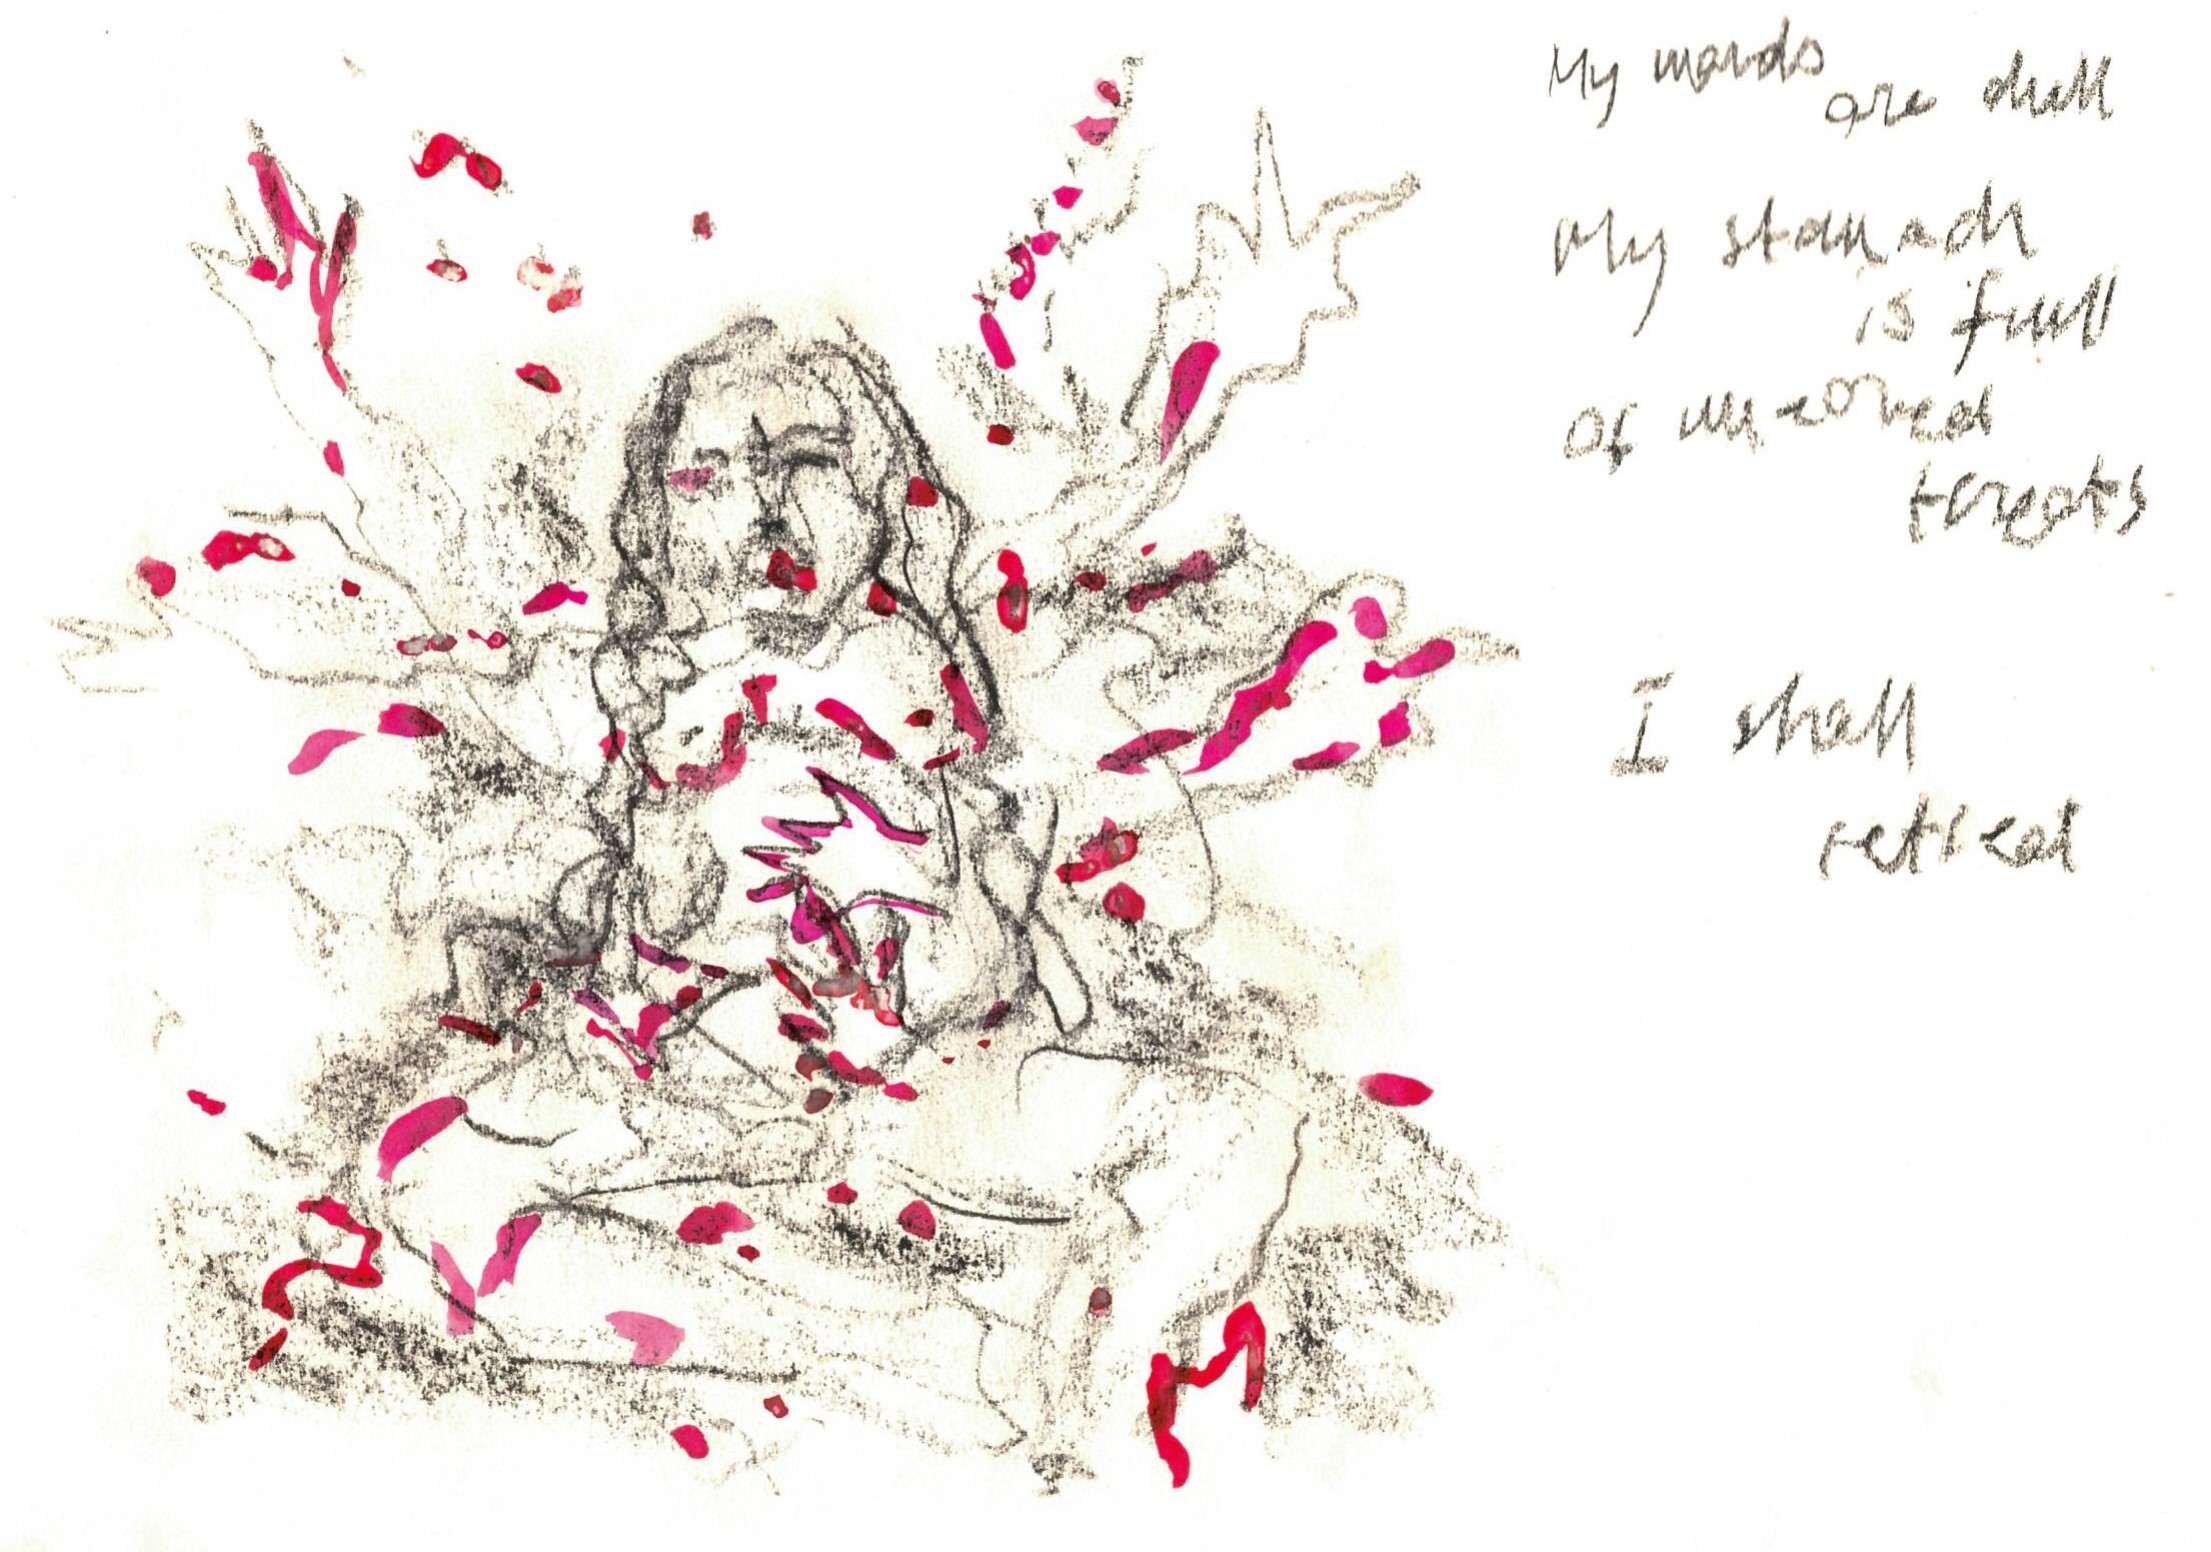 My words
are dull
My stomach
is full
of
threats
I shall
retreat